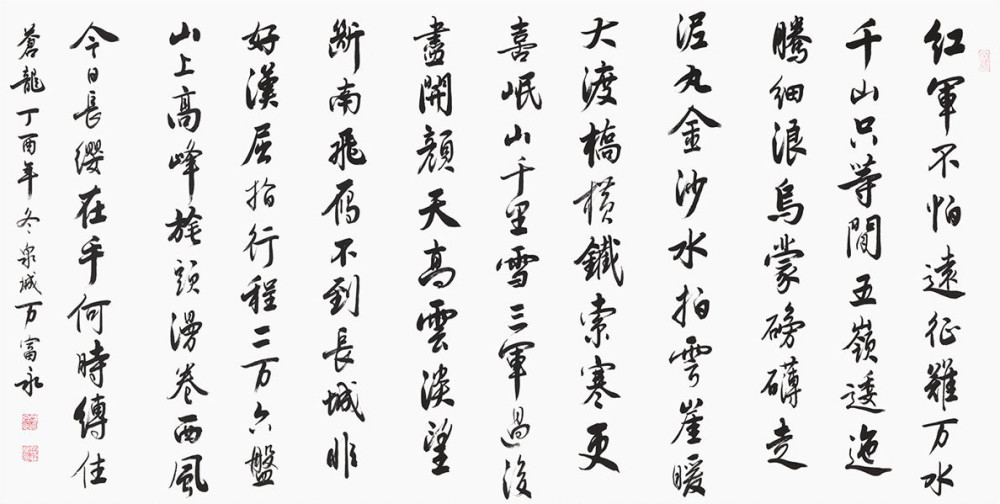 紅軍不怕遠征難万水
千山只等閒五嶺逶迤
騰細浪烏蒙磅礴走
泥丸金沙水拍雲崖暖
大渡橋橫鐵索寒更
喜岷山千里雪三軍過後
盡開顔天高雲淡望
斷南飛雁不到長城非
好漢屈指行程二万六盤
山上高峰旄頭漫卷西風
今日長纓在手何時縛住
蒼龍丁酉年冬泉城万富永